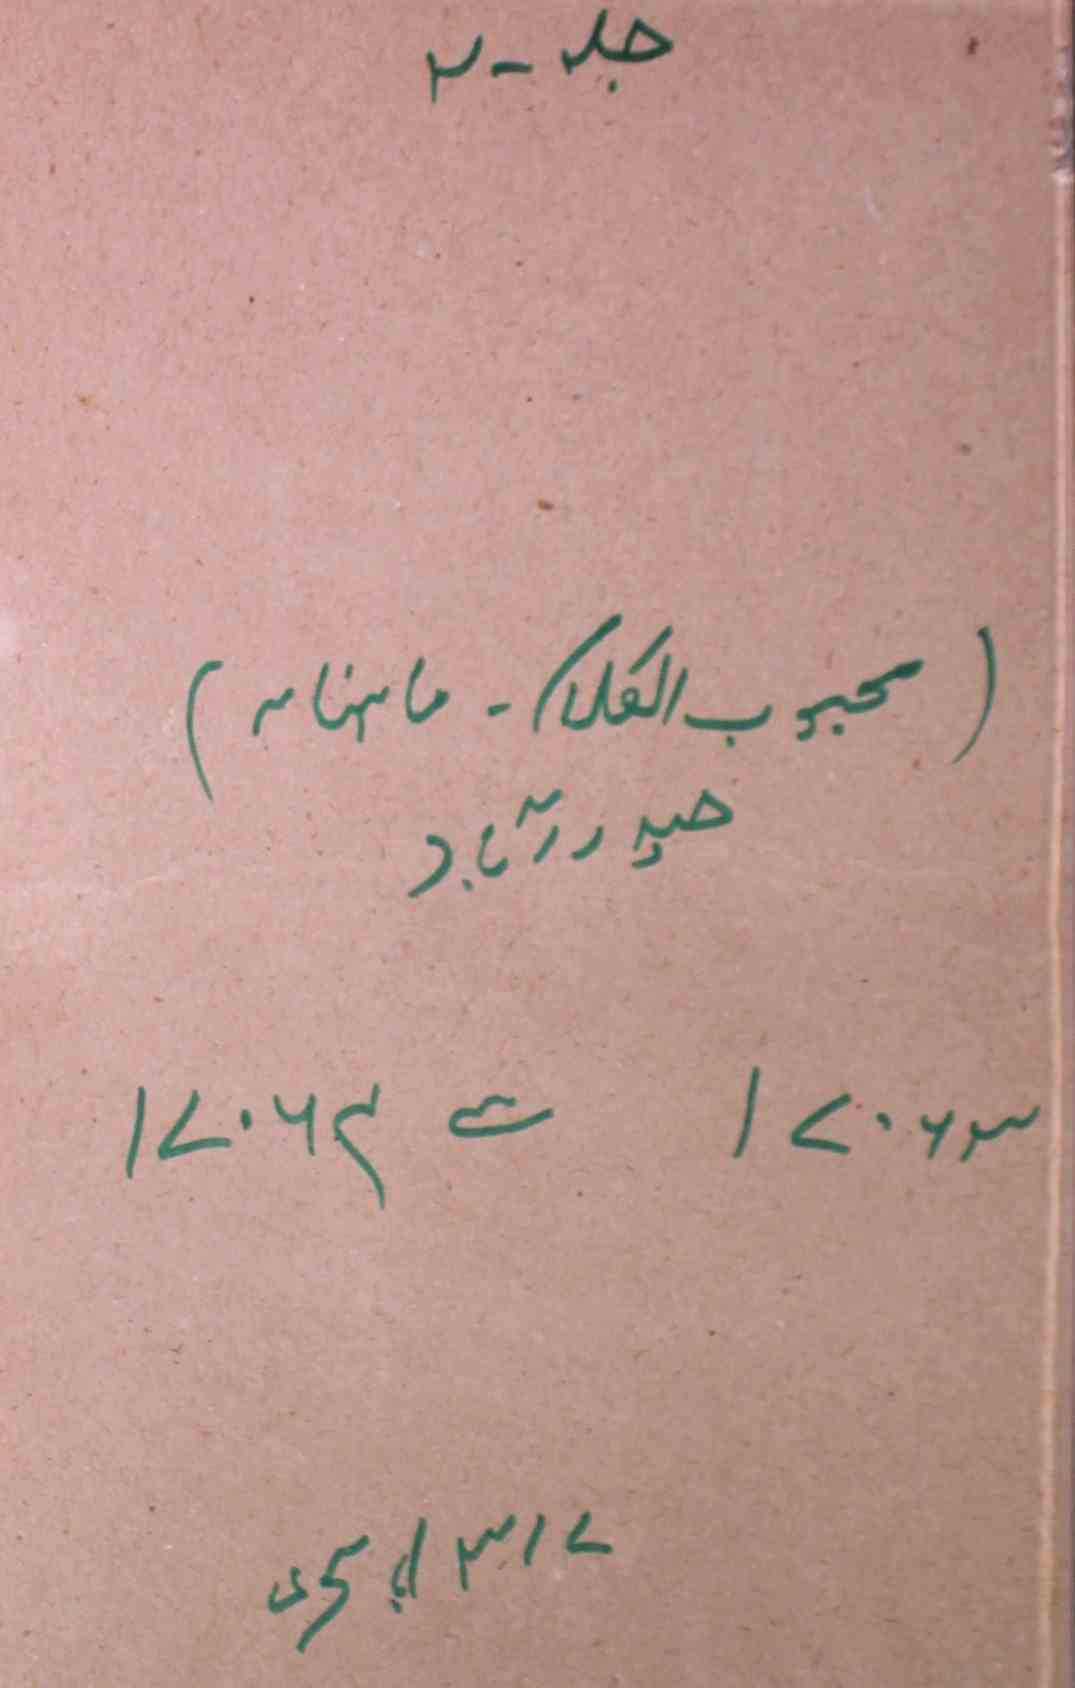 جلد - ۲
(محبوب الکلام - ماہنامہ)
حیدرآباد
۱۷۰۶۳ سے ۱۷۰۶۴
۱۳۱۷ ہجری